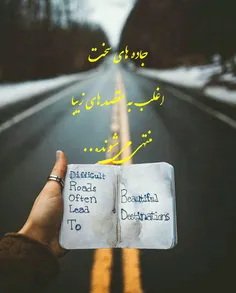 جاده های سخت
اغلب به مقصدهای زیبا
منتهی می شوند...
Difficult
Roads
Often
Lead
To
Beautiful
Destinations